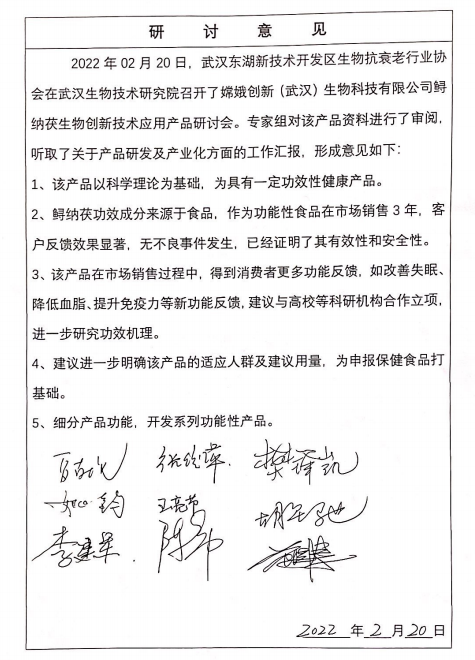 研讨意见
2022年02月20日，武汉东湖新技术开发区生物抗衰老行业协
会在武汉生物技术研究院召开了嫦娥创新（武汉）生物科技有限公司鲟
纳茯生物创新技术应用产品研讨会。专家组对该产品资料进行了审阅，
听取了关于产品研发及产业化方面的工作汇报，形成意见如下：
1、该产品以科学理论为基础，为具有一定功效性健康产品。
2、鲟纳茯功效成分来源于食品，作为功能性食品在市场销售3年，客
户反馈效果显著，无不良事件发生，已经证明了其有效性和安全性。
3、该产品在市场销售过程中，得到消费者更多功能反馈，如改善失眠、
降低血脂、提升免疫力等新功能反馈，建议与高校等科研机构合作立项，
进一步研究功效机理。
4、建议进一步明确该产品的适应人群及建议用量，为申报保健食品打
基础。
5、细分产品功能，开发系列功能性产品。
樊泽凯
李建军
2022年2月20日